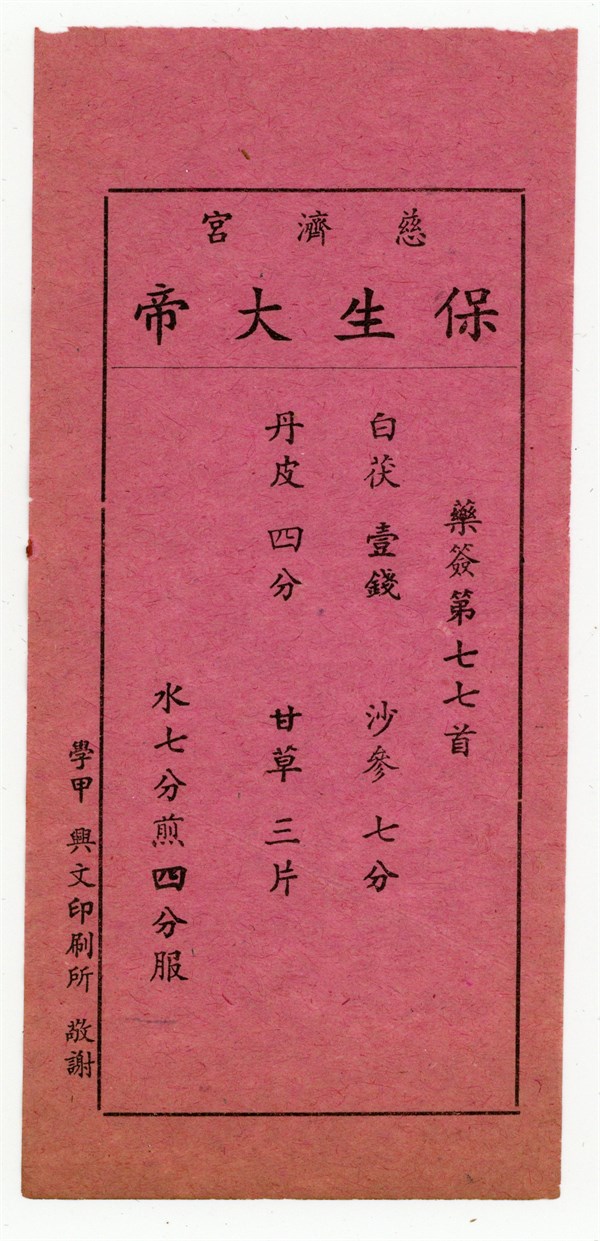 慈濟宮
保生大帝
藥簽第七七首
白茯 壹錢 沙參 七分
丹皮 四分 甘草 三片
水七分煎四分服
學甲 興文印刷所 敬謝